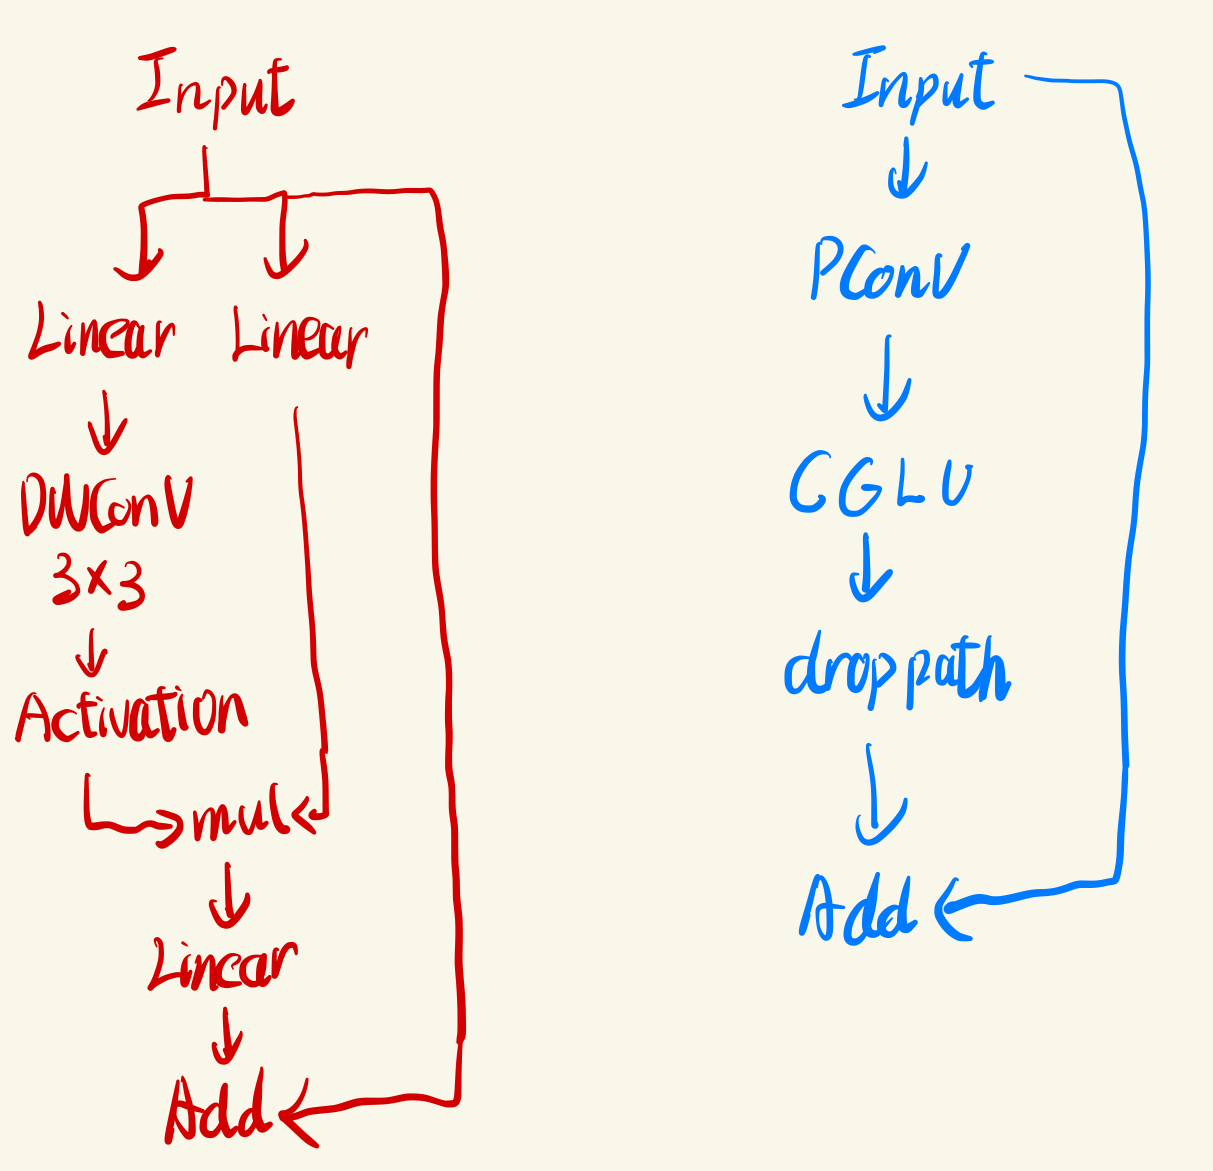 Input
Linear Linear
DWConv
3×3
Activation
mul
Linear
Add
Input
PConv
CGLU
droppath
Add